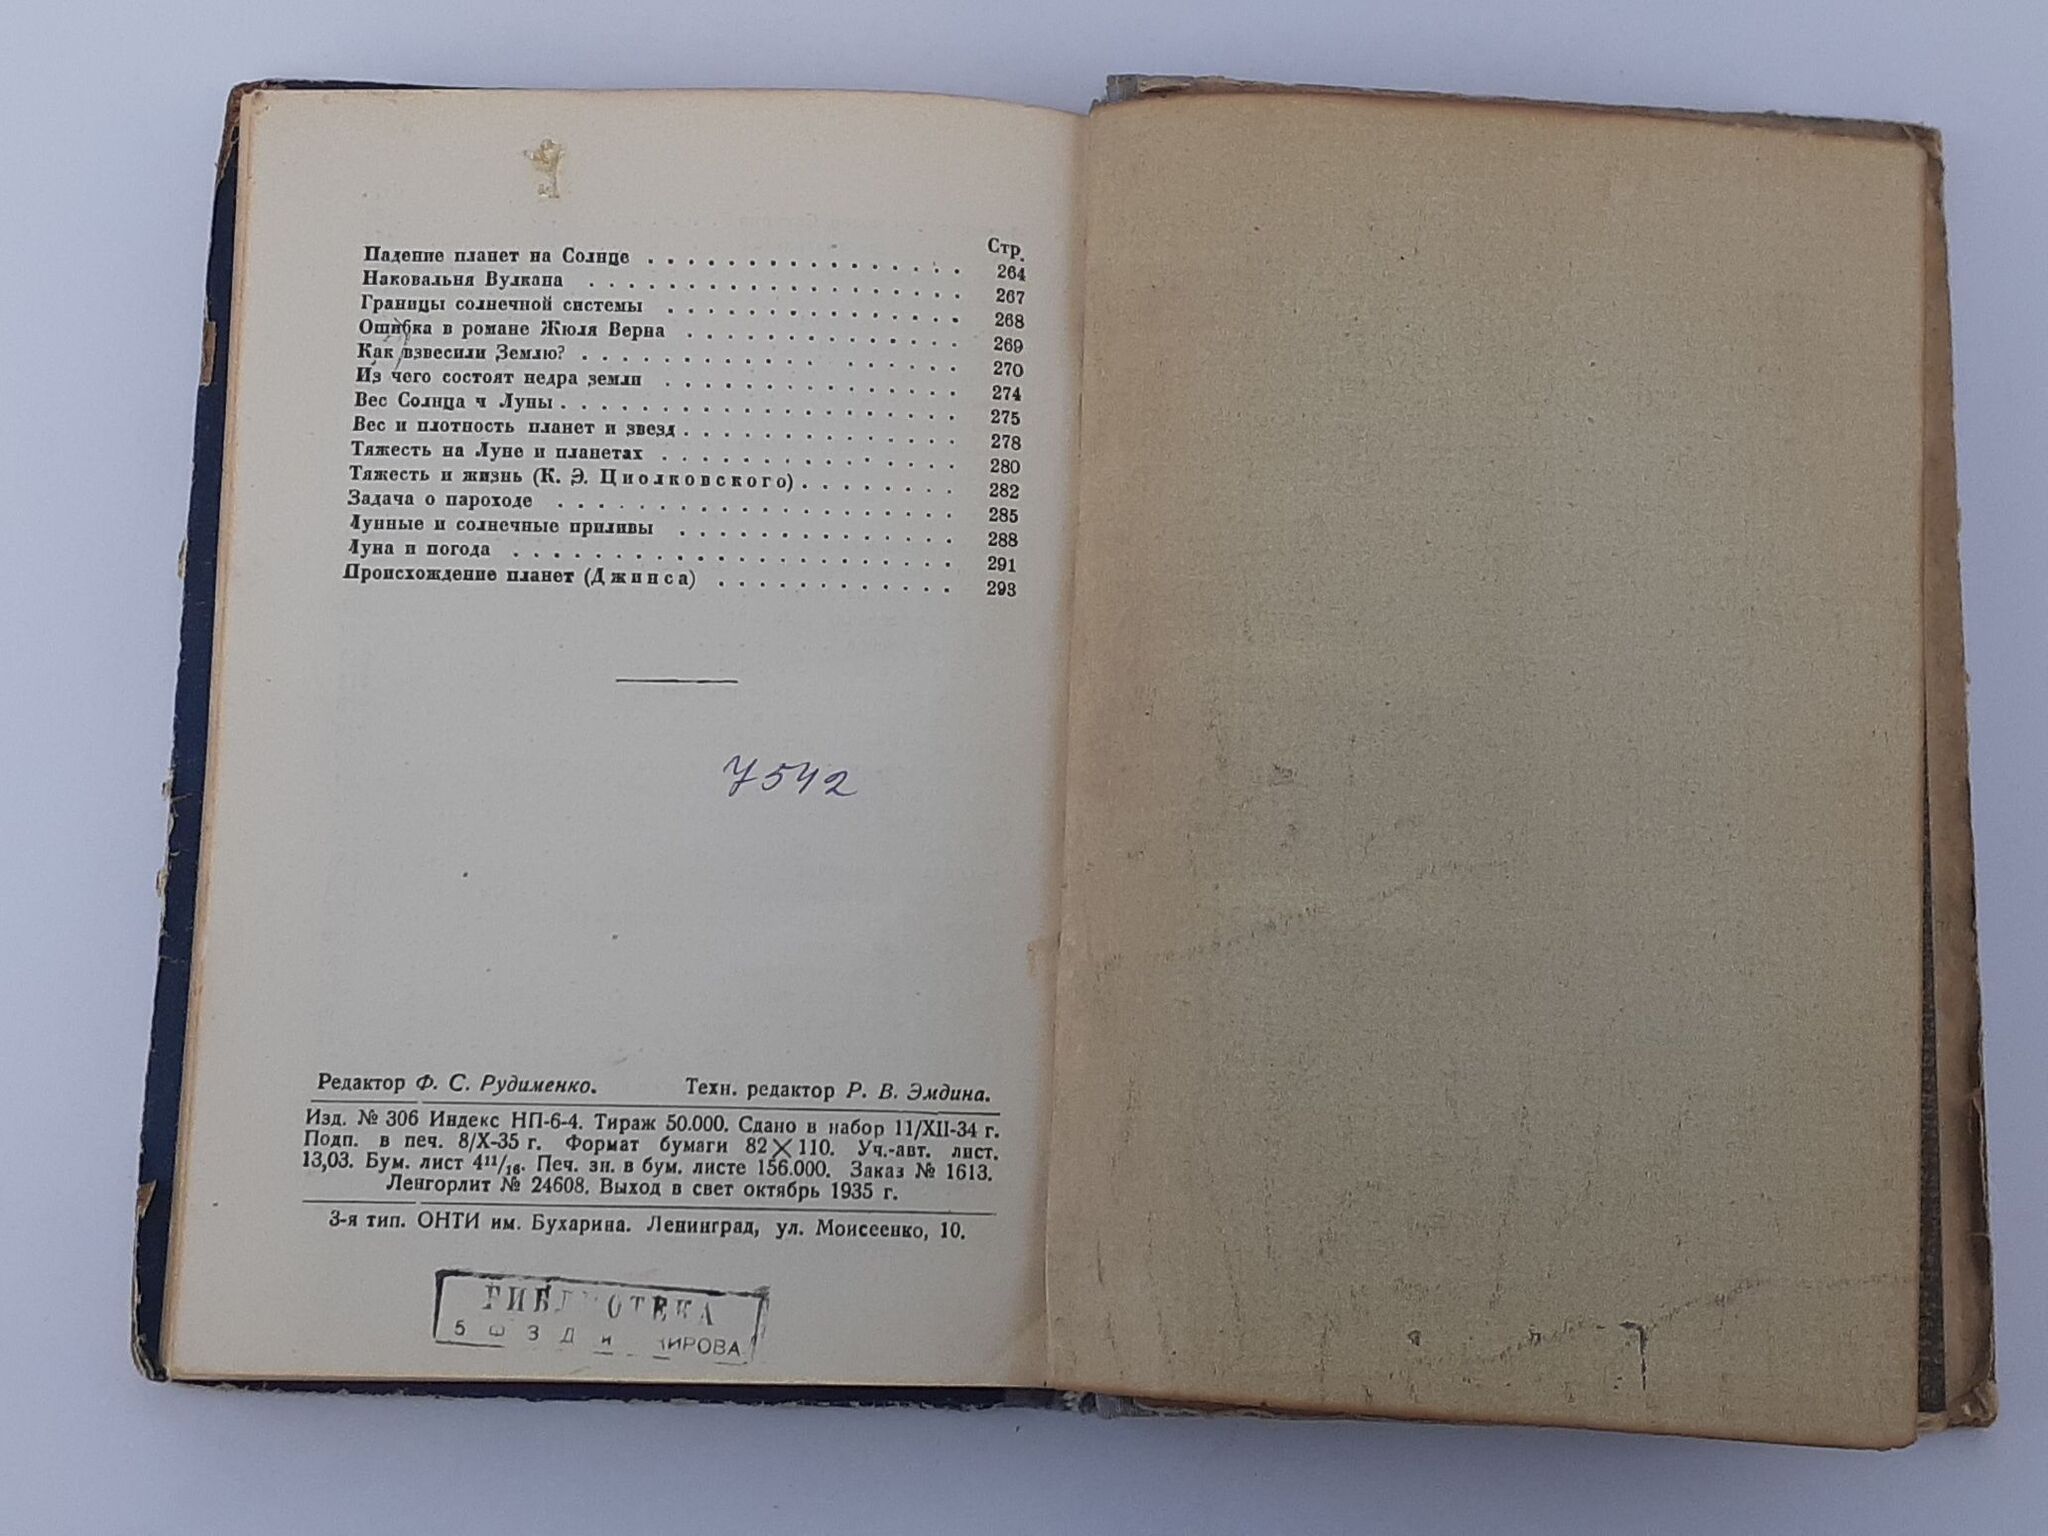 Стр.
Падение планет на Солнце . . . . . . . . . . . . . . . . 264
Наковальня Вулкана . . . . . . . . . . . . . . . . . . . 267
Границы солнечной системы . . . . . . . . . . . . . . . 268
Ошибка в романе Жюля Верна . . . . . . . . . . . . . . 269
Как взвесили Землю? . . . . . . . . . . . . . . . . . . 270
Из чего состоят недра земли . . . . . . . . . . . . . . . 274
Вес Солнца ч Луны . . . . . . . . . . . . . . . . . . . . 275
Вес и плотность планет и звезд . . . . . . . . . . . . . . 278
Тяжесть на Луне и планетах . . . . . . . . . . . . . . . 280
Тяжесть и жизнь (К. Э. Циолковского) . . . . . . . . 282
Задача о пароходе . . . . . . . . . . . . . . . . . . . . 285
Лунные и солнечные приливы . . . . . . . . . . . . . . 288
Луна и погода . . . . . . . . . . . . . . . . . . . . . . 291
Происхождение планет (Джинса) . . . . . . . . . . . . 293
7542
Редактор Ф. С. Рудименко. Техн. редактор Р. В. Эмдина.
Изд. № 306 Индекс НП-6-4. Тираж 50.000. Сдано в набор 11/XII-34 г.
Подп. в печ. 8/X-35 г. Формат бумаги 82×110. Уч.-авт. лист.
13,03. Бум. лист 4¹¹/₁₆. Печ. зн. в бум. листе 156.000. Заказ № 1613.
Ленгорлит № 24608. Выход в свет октябрь 1935 г.
3-я тип. ОНТИ им. Бухарина. Ленинград, ул. Моисеенко, 10.
БИБЛИОТЕКА